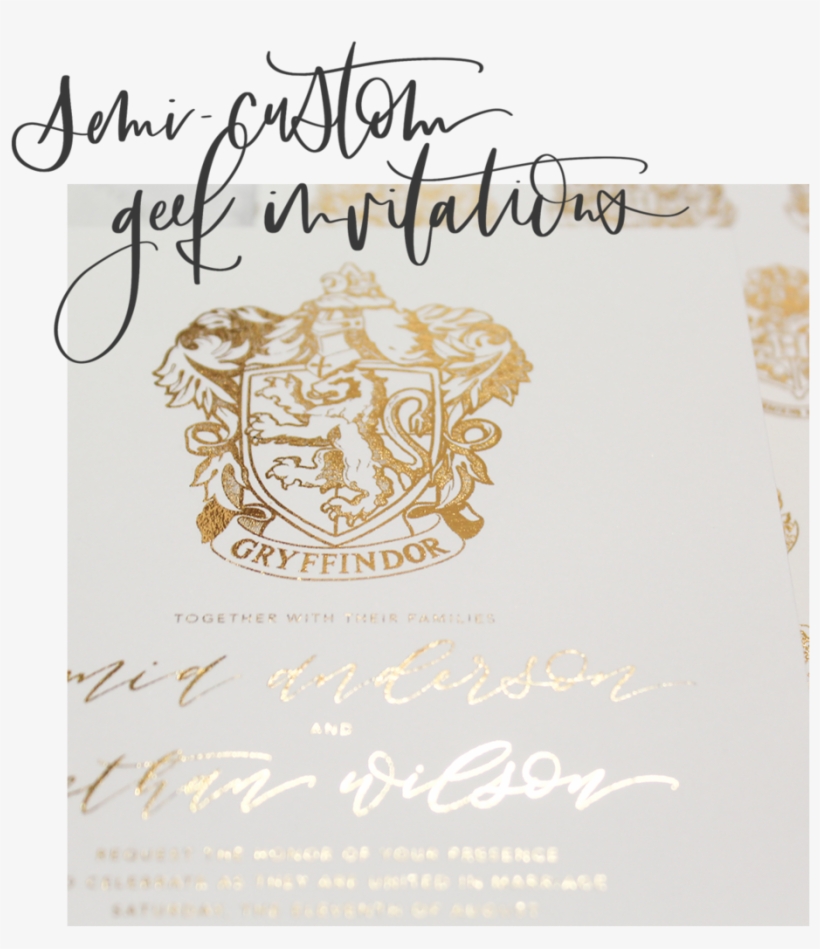 semi-custom
geek invitations
GRYFFINDOR
TOGETHER WITH THEIR FAMILIES
anderson
AND
wilson
REQUEST THE HONOR OF YOUR PRESENCE
CELEBRATE AS THEY ARE UNITED IN MARRIAGE
SATURDAY, THE ELEVENTH OF AUGUST